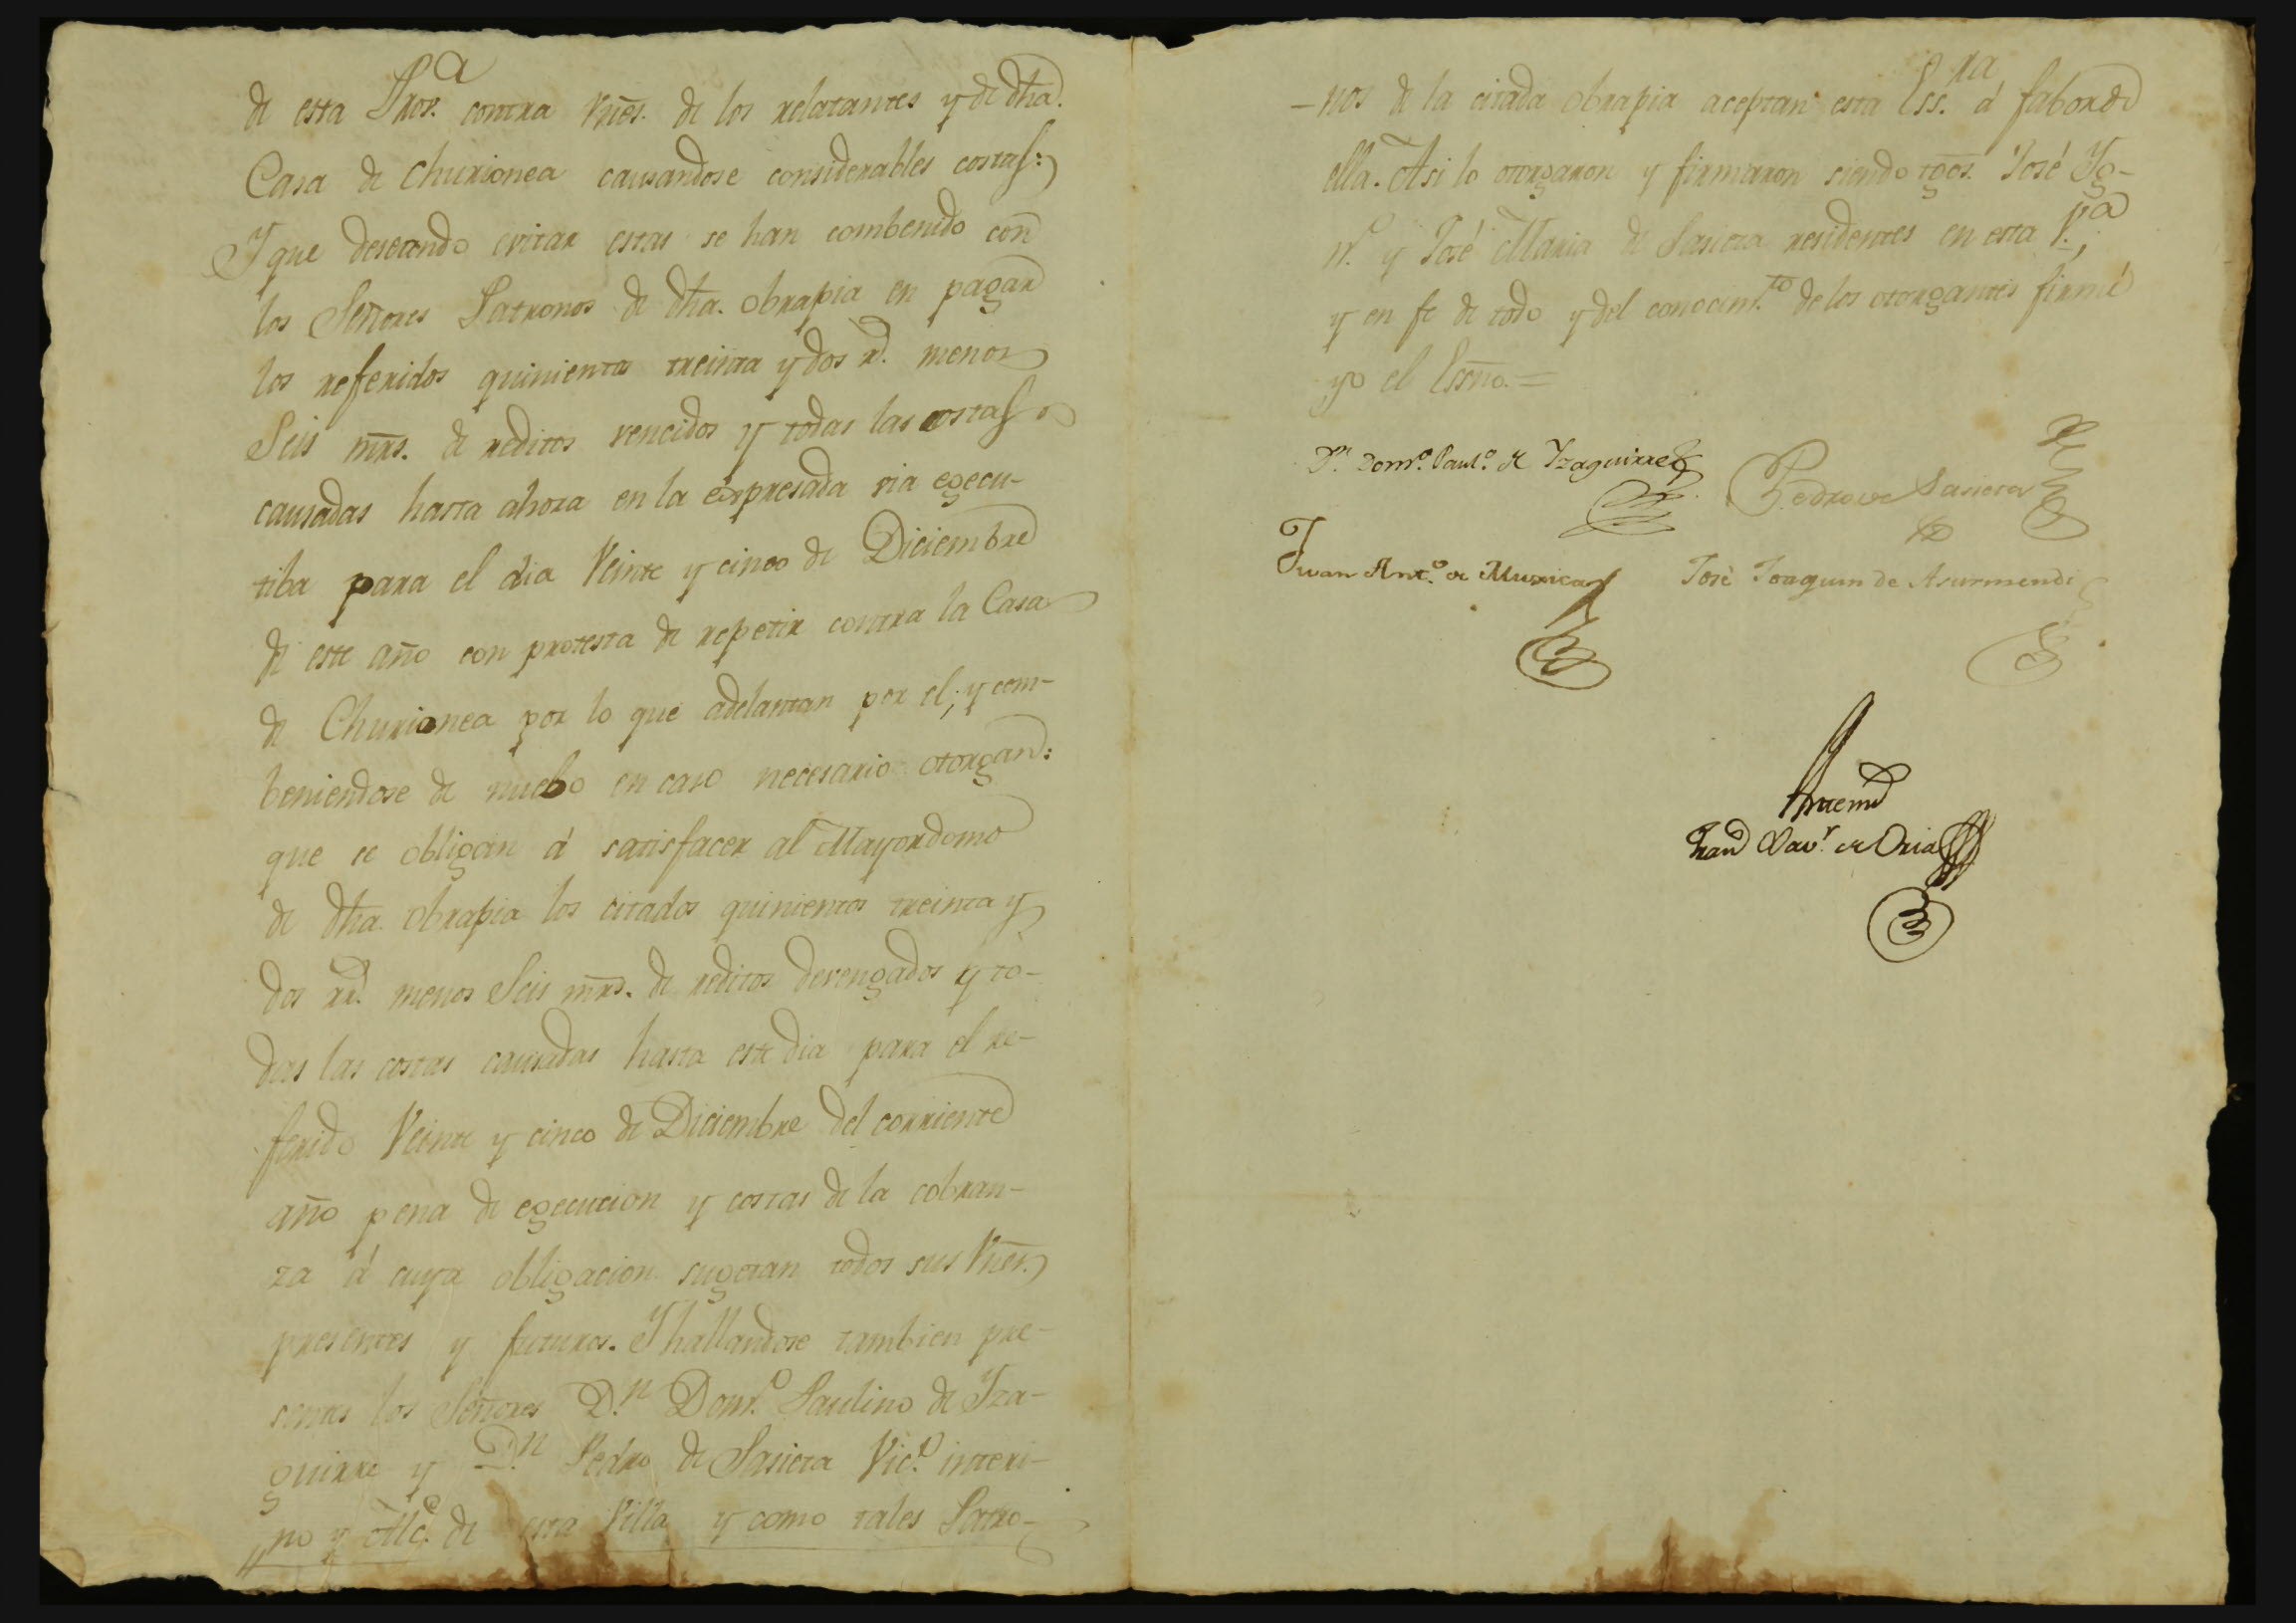 de esta Prov.ª contra Vnēs. de los relatantes y de dha.
Casa de Churionea causandose considerables costas:
Y que deseando evitar estas se han combenido con
los Señores Patronos de dha. obrapia en pagar
los referidos quinientos treinta y dos r.ˢ menos
Seis mrs. de reditos vencidos y todas las costas
causadas hasta ahora en la expresada via egecu-
tiba para el dia Veinte y cinco de Diciembre
de este año con protesta de repetir contra la Casa
de Churionea por lo que adelantan por el; y com-
beniendose de nuebo en caso necesario otorgan:
que se obligan á satisfacer al Mayordomo
de dha. obrapia los citados quinientos treinta y
dos rr.ˢ menos Seis mrs. de reditos devengados y to-
das las costas causadas hasta este dia para el re-
ferido Veinte y cinco de Diciembre del corriente
año pena de egecucion y costas de la cobran-
za á cuya obligacion sugetan todos sus Vnēs.
presentes y futuros. Y hallandose tambien pre-
sentes los Señores D.ⁿ Dom.º Paulino de Yza-
guirre y D.ⁿ Pedro de Sasieta Vic.º interi-
no y Alc.ᵉ de esta Villa y como tales Patro-
-nos de la citada obrapia aceptan esta Ess.ʳᵃ á fabor de
ella. Asi lo otorgaron y firmaron siendo tgōs. José Yg-
n.º y José Maria de Sasieta residentes en esta V.ª;
y en fe de todo y del conocim.ᵗᵒ de los otorgantes firmé
yo el Essno. =
D.ⁿ Dom.º Paul.º de Yzaguirre
Pedro de Sasieta
Juan Ant.º de Muxica
José Joaquin de Asurmendi
Antemi
Fran.ᶜᵒ Xav.ʳ de Oria